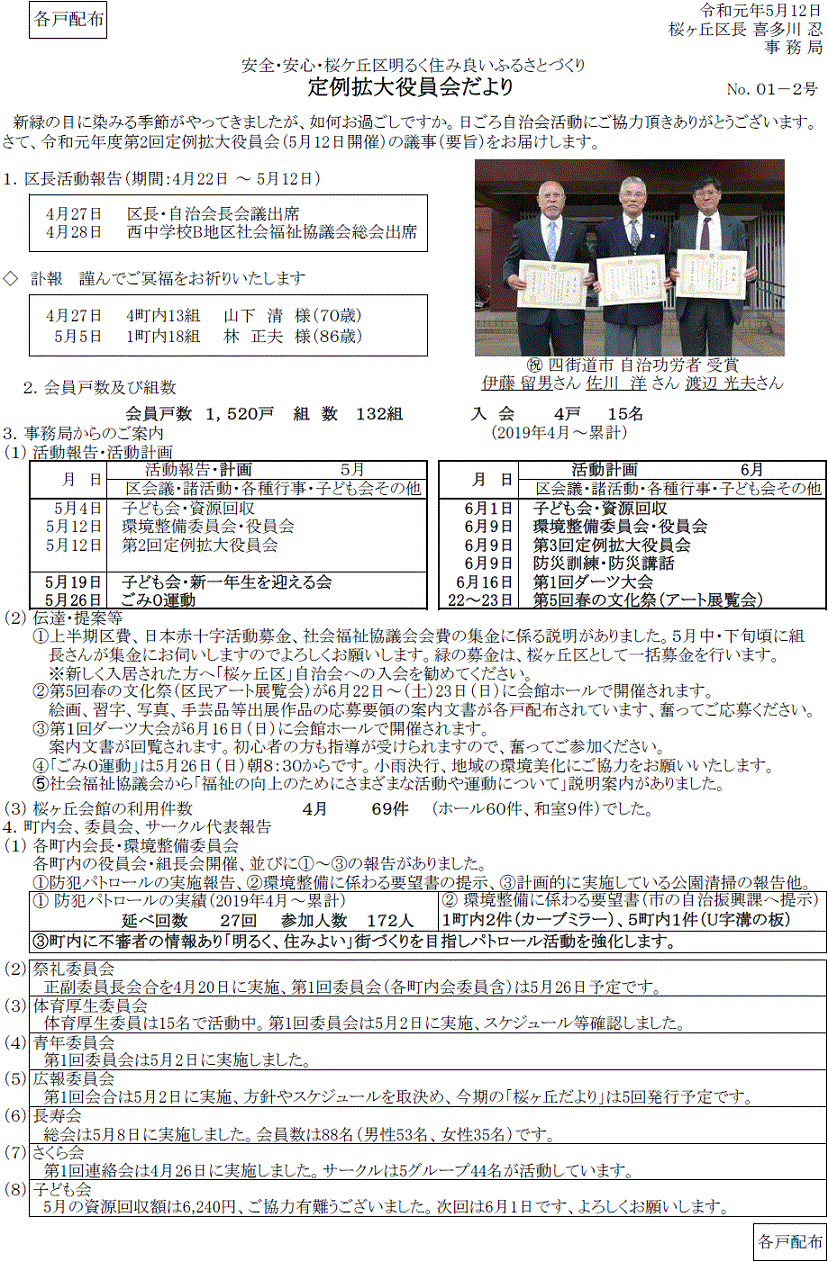 各戸配布
令和元年5月12日
桜ヶ丘区長 喜多川 忍
事 務 局
安全・安心・桜ケ丘区明るく住み良いふるさとづくり
定例拡大役員会だより
No. 01-2号
新緑の目に染みる季節がやってきましたが、如何お過ごしですか。日ごろ自治会活動にご協力頂きありがとうございます。
さて、令和元年度第2回定例拡大役員会(5月12日開催)の議事(要旨)をお届けします。
1. 区長活動報告(期間:4月22日 ～ 5月12日)
4月27日 区長・自治会長会議出席
4月28日 西中学校B地区社会福祉協議会総会出席
◇ 訃報 謹んでご冥福をお祈りいたします
4月27日 4町内13組 山下 清 様(70歳)
5月5日 1町内18組 林 正夫 様(86歳)
㊗ 四街道市 自治功労者 受賞
伊藤 留男さん 佐川 洋 さん 渡辺 光夫さん
2. 会員戸数及び組数
会員戸数 1,520戸 組 数 132組 入 会 4戸 15名
(2019年4月～累計)
3. 事務局からのご案内
(1) 活動報告・活動計画
月 日 活動報告・計画 5月
区会議・諸活動・各種行事・子ども会その他
5月4日 子ども会・資源回収
5月12日 環境整備委員会・役員会
5月12日 第2回定例拡大役員会
5月19日 子ども会・新一年生を迎える会
5月26日 ごみ0運動
月 日 活動計画 6月
区会議・諸活動・各種行事・子ども会その他
6月1日 子ども会・資源回収
6月9日 環境整備委員会・役員会
6月9日 第3回定例拡大役員会
6月9日 防災訓練・防災講話
6月16日 第1回ダーツ大会
22～23日 第5回春の文化祭(アート展覧会)
(2) 伝達・提案等
①上半期区費、日本赤十字活動募金、社会福祉協議会会費の集金に係る説明がありました。5月中・下旬頃に組
長さんが集金にお伺いしますのでよろしくお願いします。緑の募金は、桜ヶ丘区として一括募金を行います。
※新しく入居された方へ「桜ヶ丘区」自治会への入会を勧めてください。
②第5回春の文化祭(区民アート展覧会)が6月22日～(土)23日(日)に会館ホールで開催されます。
絵画、習字、写真、手芸品等出展作品の応募要領の案内文書が各戸配布されています、奮ってご応募ください。
③第1回ダーツ大会が6月16日(日)に会館ホールで開催されます。
案内文書が回覧されます。初心者の方も指導が受けられますので、奮ってご参加ください。
④「ごみ0運動」は5月26日(日)朝8:30からです。小雨決行、地域の環境美化にご協力をお願いいたします。
⑤社会福祉協議会から「福祉の向上のためにさまざまな活動や運動について」説明案内がありました。
(3) 桜ヶ丘会館の利用件数 4月 69件 (ホール60件、和室9件)でした。
4. 町内会、委員会、サークル代表報告
(1) 各町内会長・環境整備委員会
各町内の役員会・組長会開催、並びに①～③の報告がありました。
①防犯パトロールの実施報告、②環境整備に係わる要望書の提示、③計画的に実施している公園清掃の報告他。
① 防犯パトロールの実績(2019年4月～累計)
延べ回数 27回 参加人数 172人
② 環境整備に係わる要望書(市の自治振興課へ提示)
1町内2件(カーブミラー)、5町内1件(U字溝の板)
③町内に不審者の情報あり「明るく、住みよい」街づくりを目指しパトロール活動を強化します。
(2) 祭礼委員会
正副委員長会合を4月20日に実施、第1回委員会(各町内会委員含)は5月26日予定です。
(3) 体育厚生委員会
体育厚生委員は15名で活動中。第1回委員会は5月2日に実施、スケジュール等確認しました。
(4) 青年委員会
第1回委員会は5月2日に実施しました。
(5) 広報委員会
第1回会合は5月2日に実施、方針やスケジュールを取決め、今期の「桜ヶ丘だより」は5回発行予定です。
(6) 長寿会
総会は5月8日に実施しました。会員数は88名(男性53名、女性35名)です。
(7) さくら会
第1回連絡会は4月26日に実施しました。サークルは5グループ44名が活動しています。
(8) 子ども会
5月の資源回収額は6,240円、ご協力有難うございました。次回は6月1日です、よろしくお願いします。
各戸配布